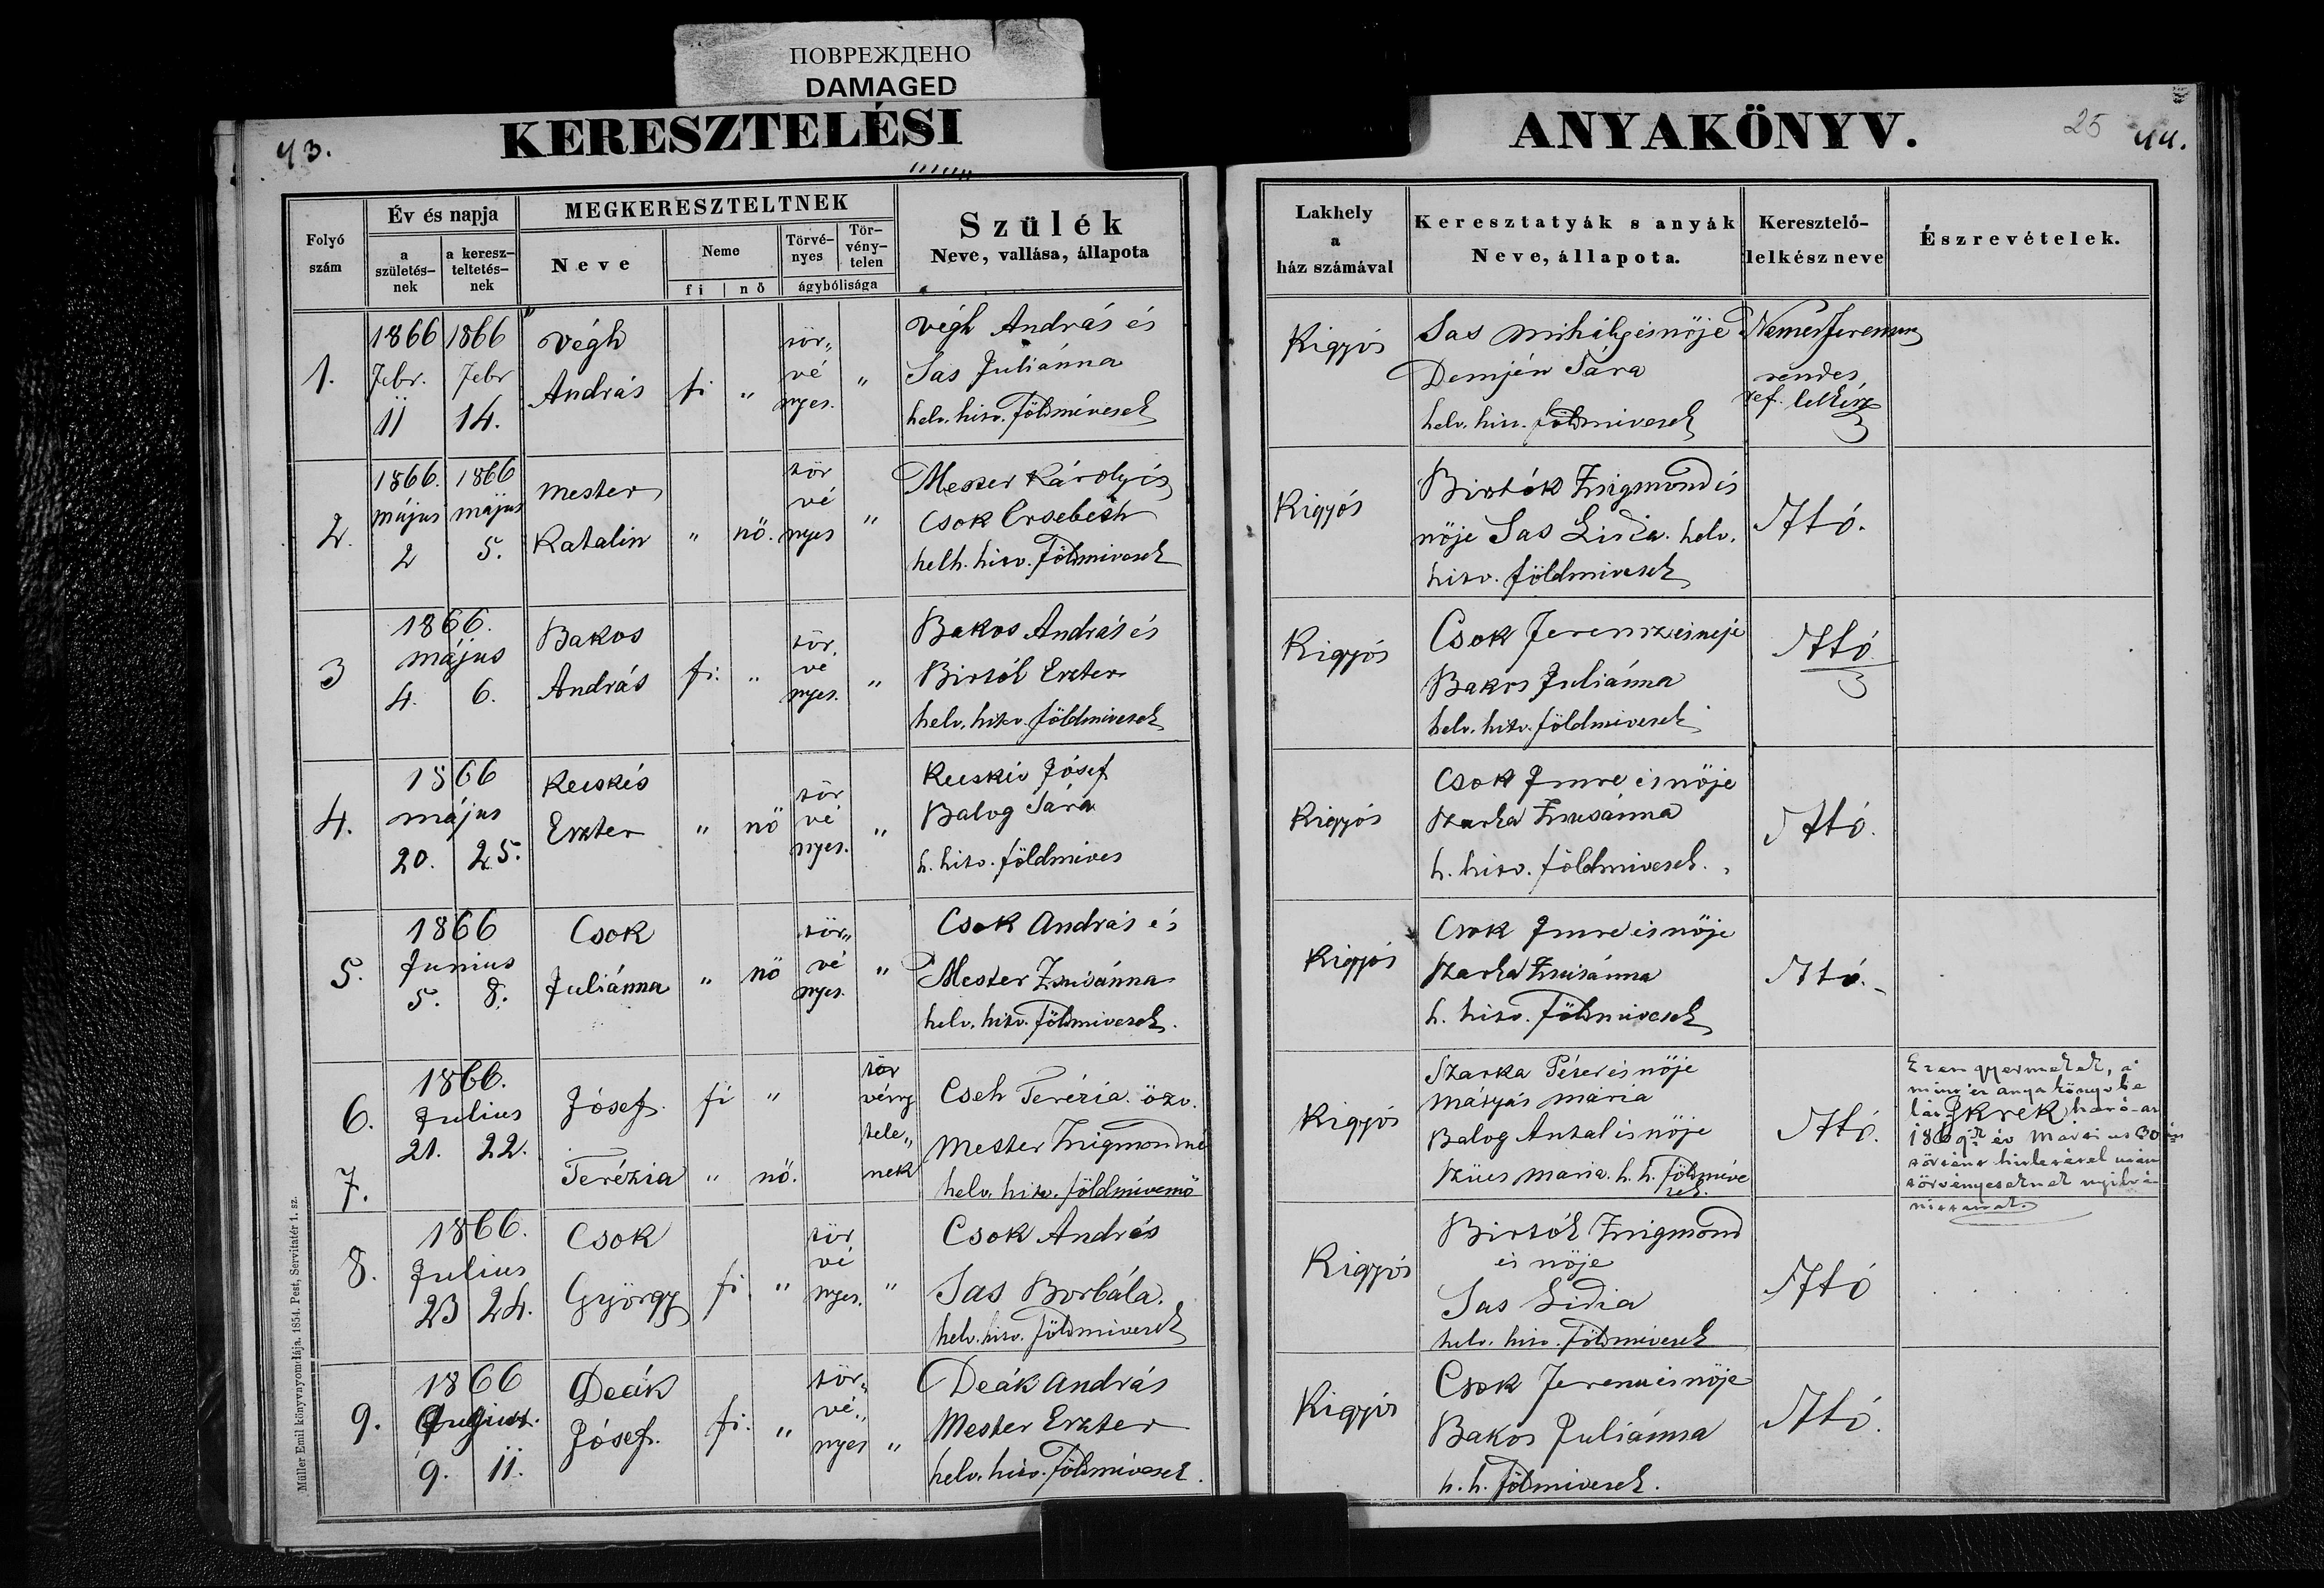 ПОВРЕЖДЕНО
DAMAGED
43.
KERESZTELÉSI
ANYAKÖNYV.
25
44.
Folyó szám
Év és napja
a születés-nek
a keresz-teltetés-nek
MEGKERESZTELTNEK
Neve
Neme
fi
nő
Törvé-nyes
Tör-vény-telen
ágybólisága
Szülék
Neve, vallása, állapota
Lakhely
a
ház számával
Keresztatyák s anyák
Neve, állapota.
Keresztelő-
lelkész neve
Észrevételek.
1.
1866 1866
Febr. Febr
11 14.
Végh
András
fi
"
tör„
vé
nyes.
"
Végh András és
Sas Juliánna
helv. hitv. földmivesek
Kigyós
Sas Mihály és nöje
Demjén Sára
helv. hitv. földmivesek
Nemes Ferencz
rendes
ref. lelkész
2.
1866. 1866
május május
2 5.
Mester
Katalin
"
nö.
tör
vé
nyes
"
Mester Károly és
Csok Ersebeth
helh. hitv. földmivesek
Kigyós
Birtók Zsigmond és
nöje Sas Lidia. helv.
hitv. földmivesek
Attó.
3
1866.
május
4. 6.
Bakos
András
fi.
"
tör.
vé
nyes.
"
Bakos András és
Birtók Eszter
helv. hitv. földmivesek
Kigyós
Csok Ferencz és neje
Bakos Juliánna
helv. hitv. földmivesek
Attó
4.
1866
május
20. 25.
Kecskés
Eszter
"
nö
tör
vé
nyes.
"
Kecskés Jósef
Balog Sára
h. hitv. földmives
Kigyós
Csok Imre és nöje
Szarka Zsusánna
h. hitv. földmivesek.
Attó.
5.
1866
Junius
5. 8.
Csok
Juliánna
"
nö
tör„
vé
nyes.
"
Csok András és
Mester Zsusánna
helv. hitv. földmivesek.
Kigyós
Csok Imre és nöje
Szarka Zsusánna
h. hitv. földmivesek
Attó.
6.
1866.
Julius
21. 22.
Jósef.
fi
"
tör
vény
tele„
nek
Cseh Terézia. özv.
Mester Zsigmondné
helv. hitv. földmivesnö
7.
Terézia
"
nö.
Kigyós
Szarka Péter és nöje
Mátyás Mária
Balog Antal és nöje
Szücs Maria. h. h. földmive
sek.
Attó.
Ezen gyermekek, a
anyakönyvbe
1869
8.
1866.
Julius
23 24.
Csok
György
fi
"
tör
vé
nyes.
"
Csok András
Sas Borbála.
helv. hitv. földmivesek
Kigyós
Birtók Zsigmond
és nöje
Sas Lidia
helv. hitv. földmivesek
Attó
9.
1866
9. 11.
Deák
Jósef.
fi.
"
tör„
vé„
nyes
"
Deák András
Mester Eszter
helv. hitv. földmivesek.
Kigyós
Csok Ferencz és nöje
Bakos Juliánna
h. h. földmivesek.
Attó.
Müller Emil könyvnyomdája. 1854. Pest, Servitatér 1. sz.